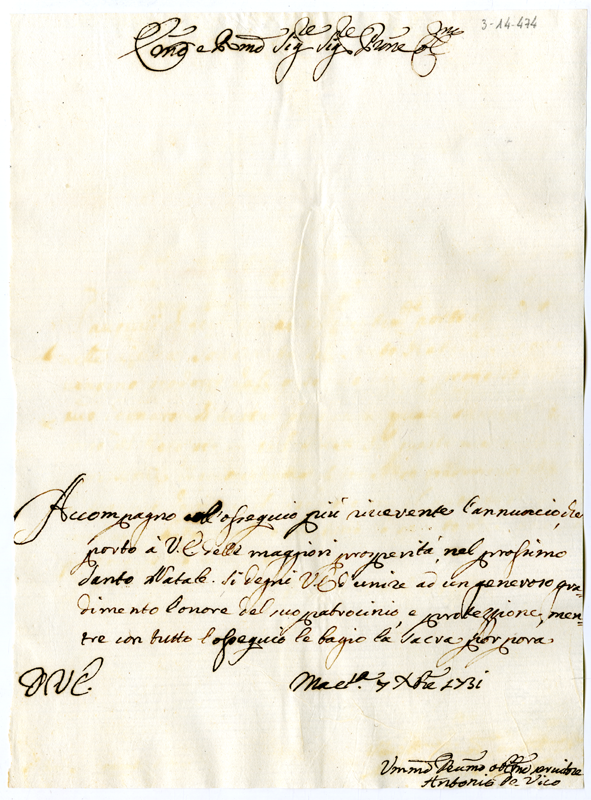 3-14-474
Emo e Rmo Sig.re Sig.re Prône Col.mo
Accompagno coll ossequio piu riverente l'annuncio, che
porto à V.E. delle maggiori prosperità nel prossimo
Santo Natale. Si degni V.E. d'unire ad un generoso gra-
dimento l'onore del suo patrocinio, e protezzione, men-
tre con tutto l'ossequio le bagio la sacra porpora
D V E.
Mac.ta 7 Xbre 1731
Ummo Deumo obbmo servitore
Antonio De Vico